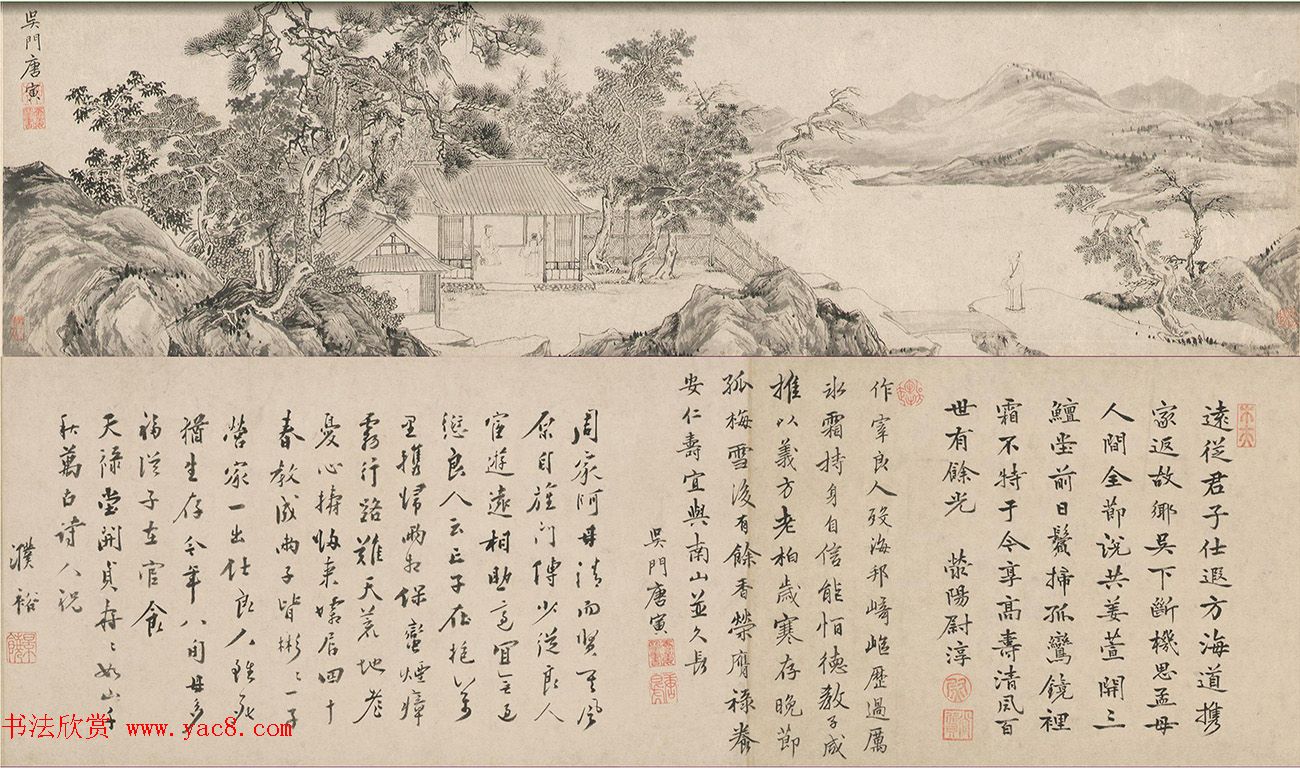 吳門唐寅
遠從君子仕遐方海道携
家返故鄉吳下斷機思孟母
人間全節說共姜萱開三
鱣堂前日鬢掃孤鸞鏡裡
霜不特于今享高壽清風百
世有餘光 滎陽尉淳
作宰良人歿海邦崎嶇歷過厲
氷霜持身自信能恒德教子咸
推以義方老柏歲寒存晚節
孤梅雪後有餘香榮膺祿養
安仁壽宜與南山並久長
吳門唐寅
周家阿母清而賢其風
原自旌門傳少從良人
宦遊遠相助
愆良人云亡子在抱萬
里攜歸兩相保蠻煙瘴
霧行路難天荒地老
憂心擣 孀居四十
春教成兩子皆彬〻一子
營家一出仕良人雖死
猶生存今年八旬母多
福從子在官食
天祿堂開貞壽〻如山千
秋萬古詩人祝
濮裕
书法欣赏 www.yac8.com